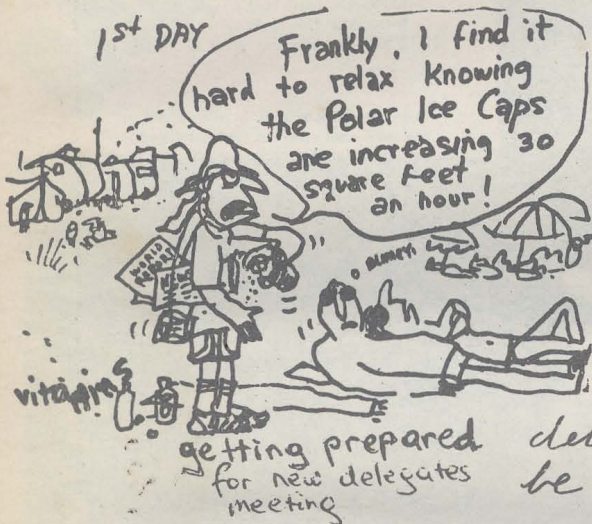 1st DAY
Frankly, I find it
hard to relax knowing
the Polar Ice Caps
are increasing 30
square feet
an hour!
WORLD
vitamins
getting prepared
for new delegates
meeting
be